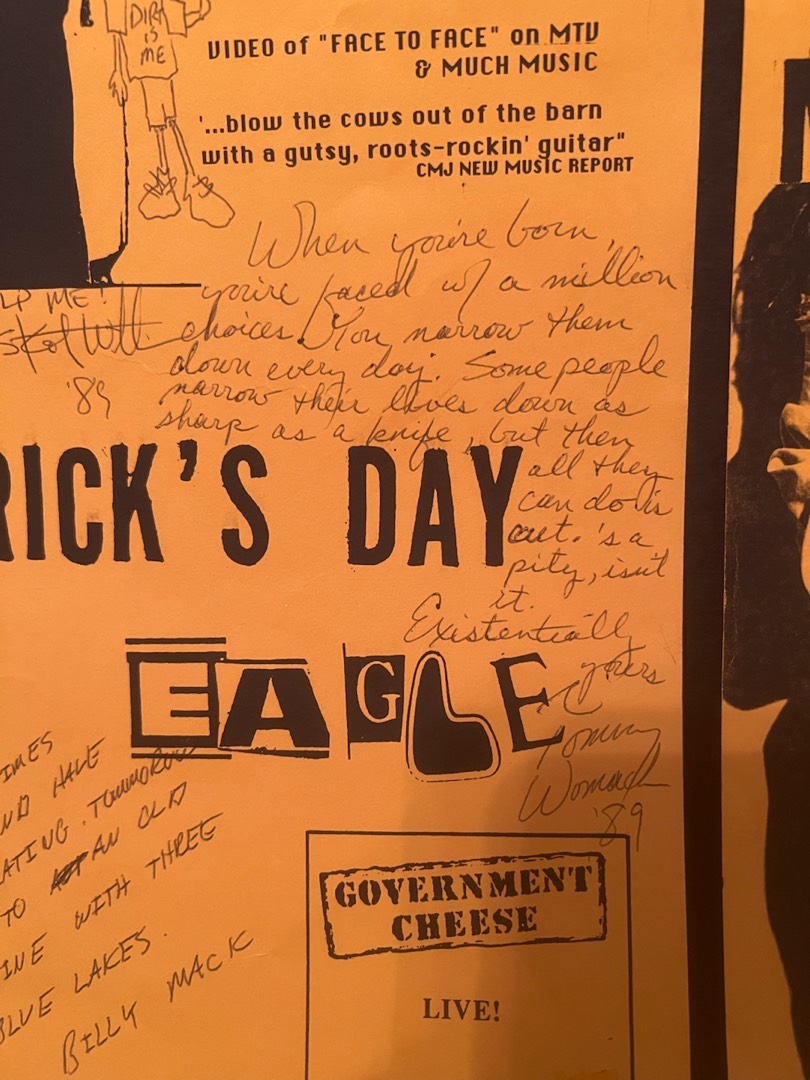 DIRT
IS
ME
VIDEO of "FACE TO FACE" on MTV
& MUCH MUSIC
'...blow the cows out of the barn
with a gutsy, roots-rockin' guitar"
CMJ NEW MUSIC REPORT
When you're born,
you're faced w/ a million
choices. You narrow them
down every day. Some people
narrow their lives down as
sharp as a knife, but then
all they
can do is
cut. 's a
pity, isn't
it.
Existentially
yours
Tommy
Womack
'89
LP ME!
'89
RICK'S DAY
EAGLE
IMES
ND HAVE
ATING. TOMMOROW
TO AN OLD
INE WITH THREE
BLUE LAKES.
BILLY MACK
GOVERNMENT
CHEESE
LIVE!